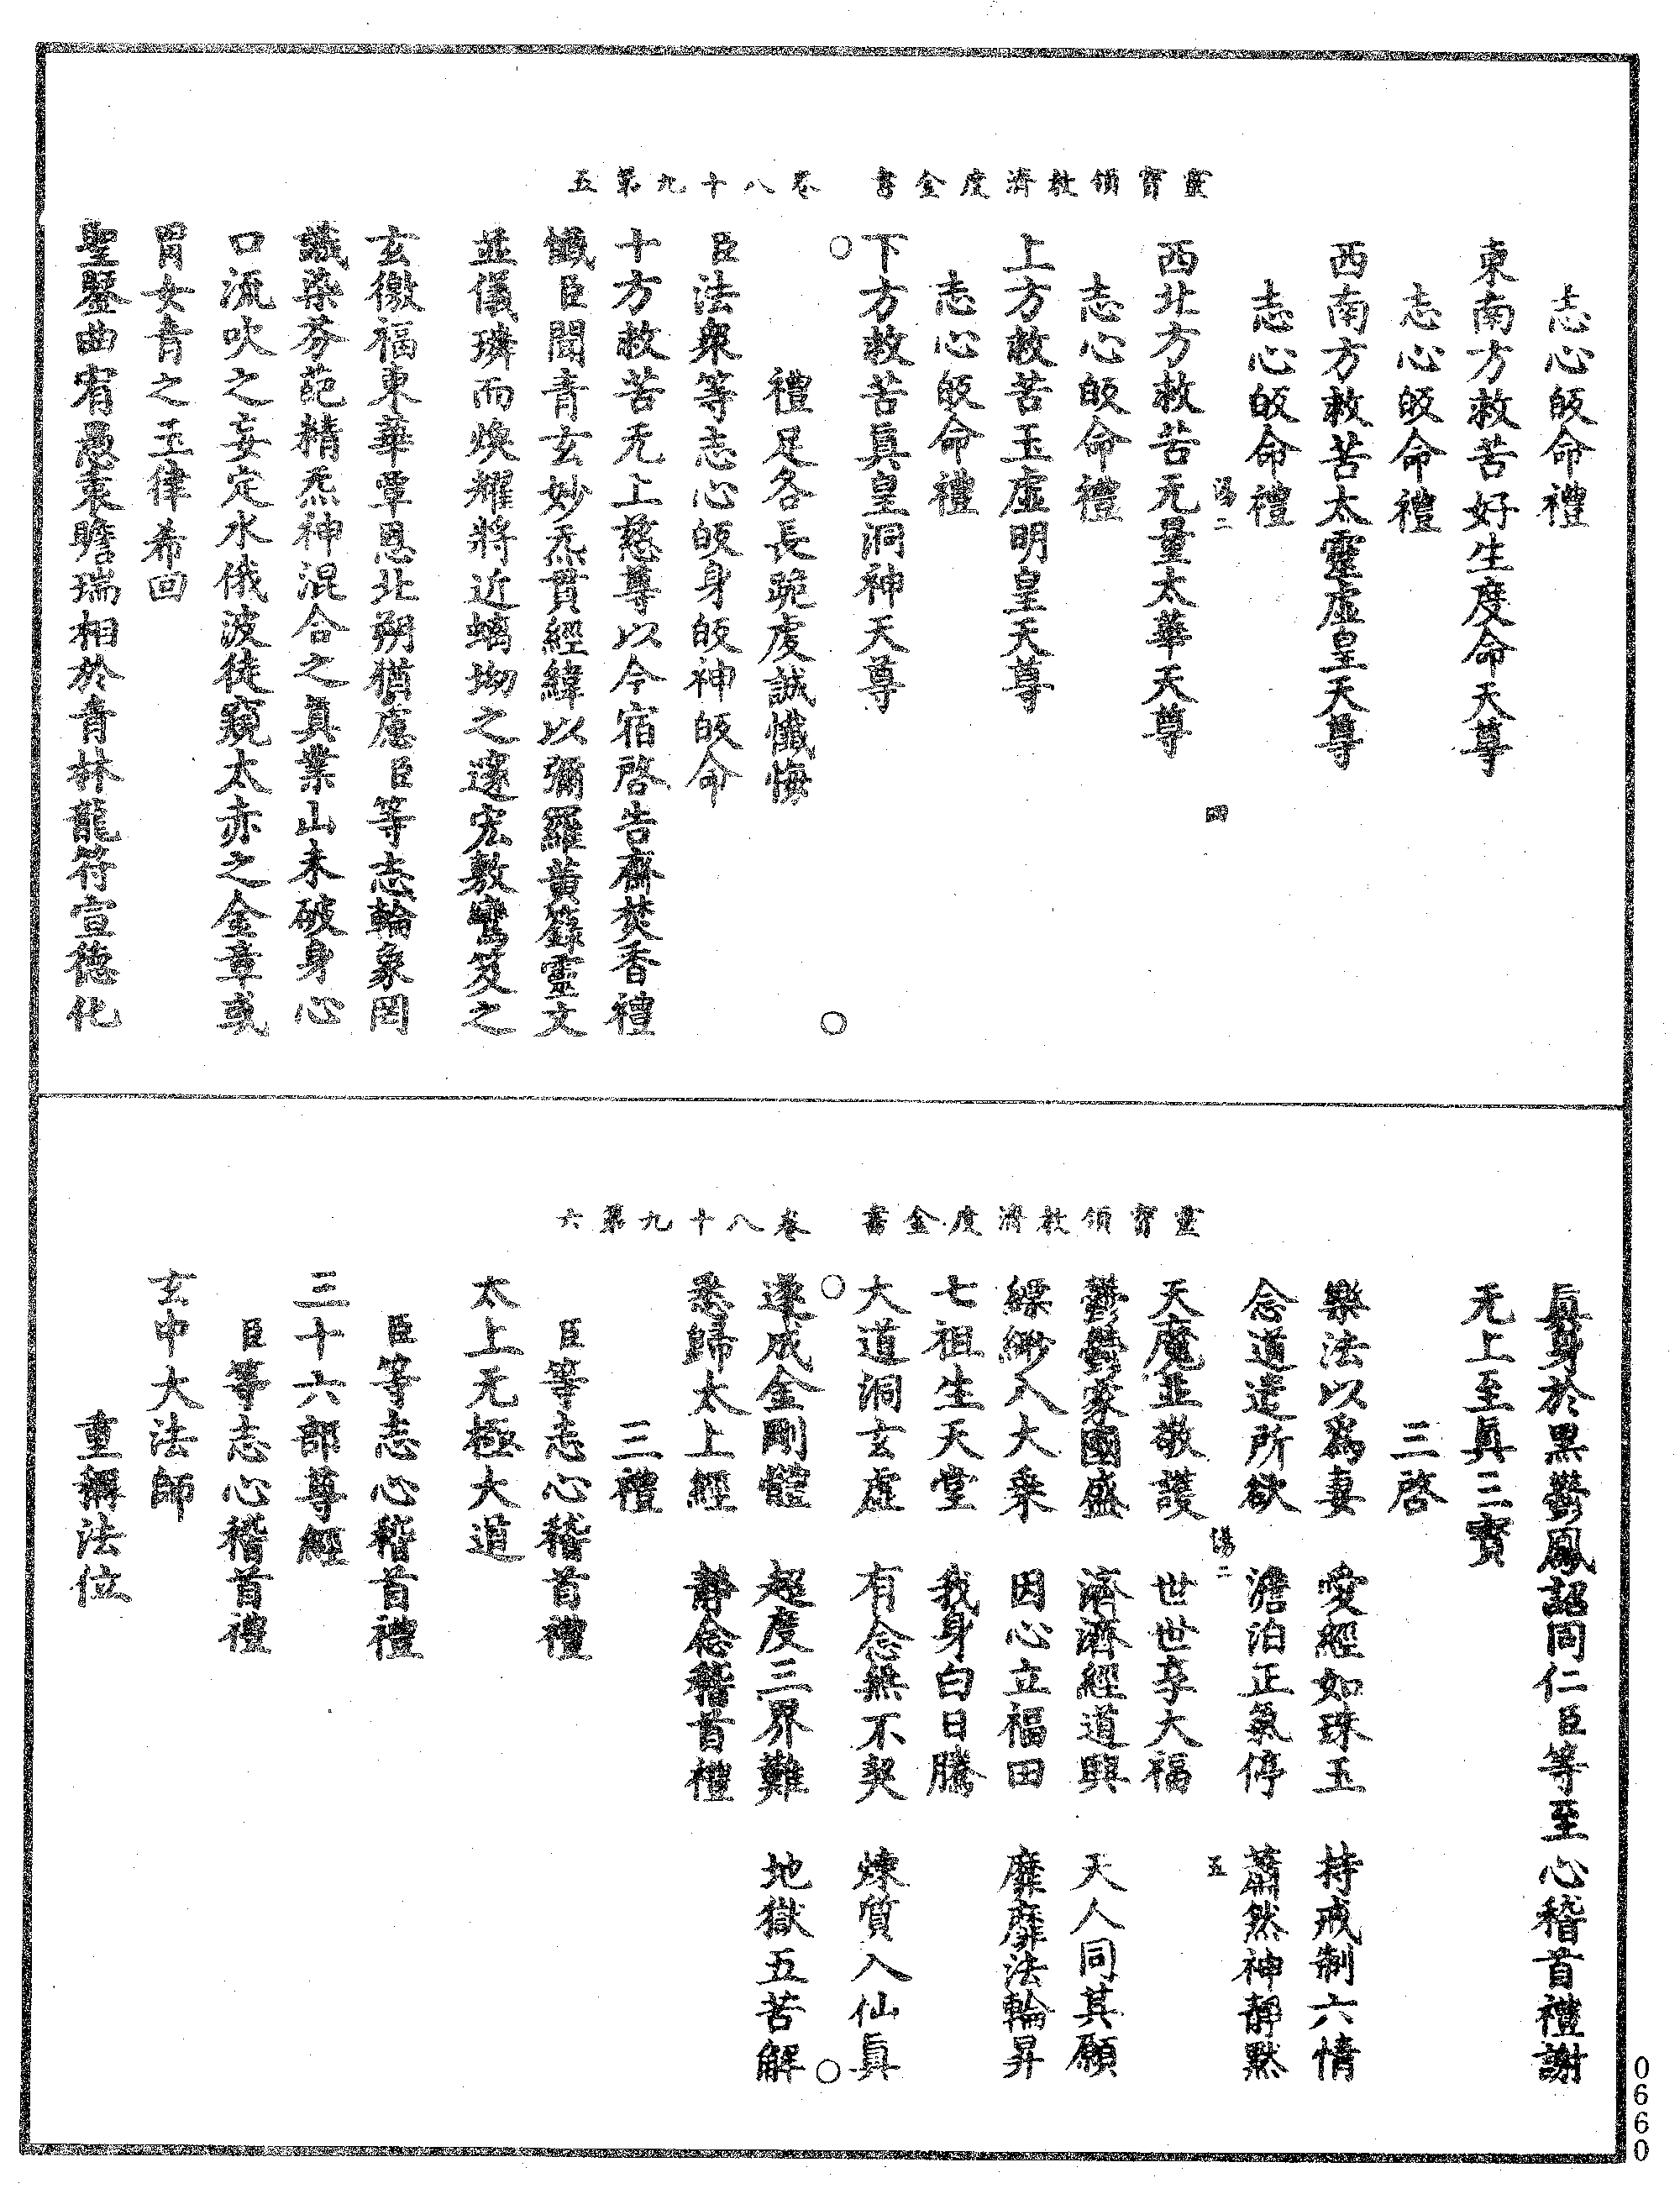 靈寶領教濟度金書　卷八十九第五
志心皈命禮
東南方救苦好生度命天尊
志心皈命禮
西南方救苦太靈虛皇天尊
志心皈命禮
湯二　四
西北方救苦无量太華天尊
志心皈命禮
上方救苦玉虛明皇天尊
志心皈命禮
下方救苦眞皇洞神天尊
禮足各長跪虔誠懺悔
臣法衆等志心皈身皈神皈命
十方救苦无上慈尊以今宿啓告齋焚香禮
懺臣聞青玄妙炁貫經緯以彌羅黃籙靈文
並儀璘而煥耀將近螭坳之邃宏敷鸞笈之
玄徼福東華覃恩北朔猶慮臣等志輪象罔
識染芬葩精炁神混合之眞業山未破身心
口流吹之妄定水俄波徒窺太赤之金章或
罥女青之玉律希回
聖鑒曲宥愚衷瞻瑞相於青林龍符宣德化
靈寶領教濟度金書　卷八十九第六
眞身於黑鬱鳳詔同仁臣等至心稽首禮謝
无上至眞三寶
三啓
樂法以爲妻　愛經如珠玉　持戒制六情
念道遣所欲　澹泊正氣停　蕭然神靜默
湯二　五
天魔並敬護　世世享大福
鬱鬱家國盛　濟濟經道興　天人同其願
縹緲入大乘　因心立福田　靡靡法輪昇
七祖生天堂　我身白日騰
大道洞玄虛　有念無不契　煉質入仙眞
遂成金剛體　超度三界難　地獄五苦解
悉歸太上經　靜念稽首禮
三禮
臣等志心稽首禮
太上无極大道
臣等志心稽首禮
三十六部尊經
臣等志心稽首禮
玄中大法師
重稱法位
0660